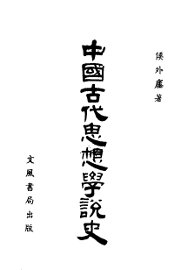 侯外廬著
中國古代思想學說史
文風書局出版